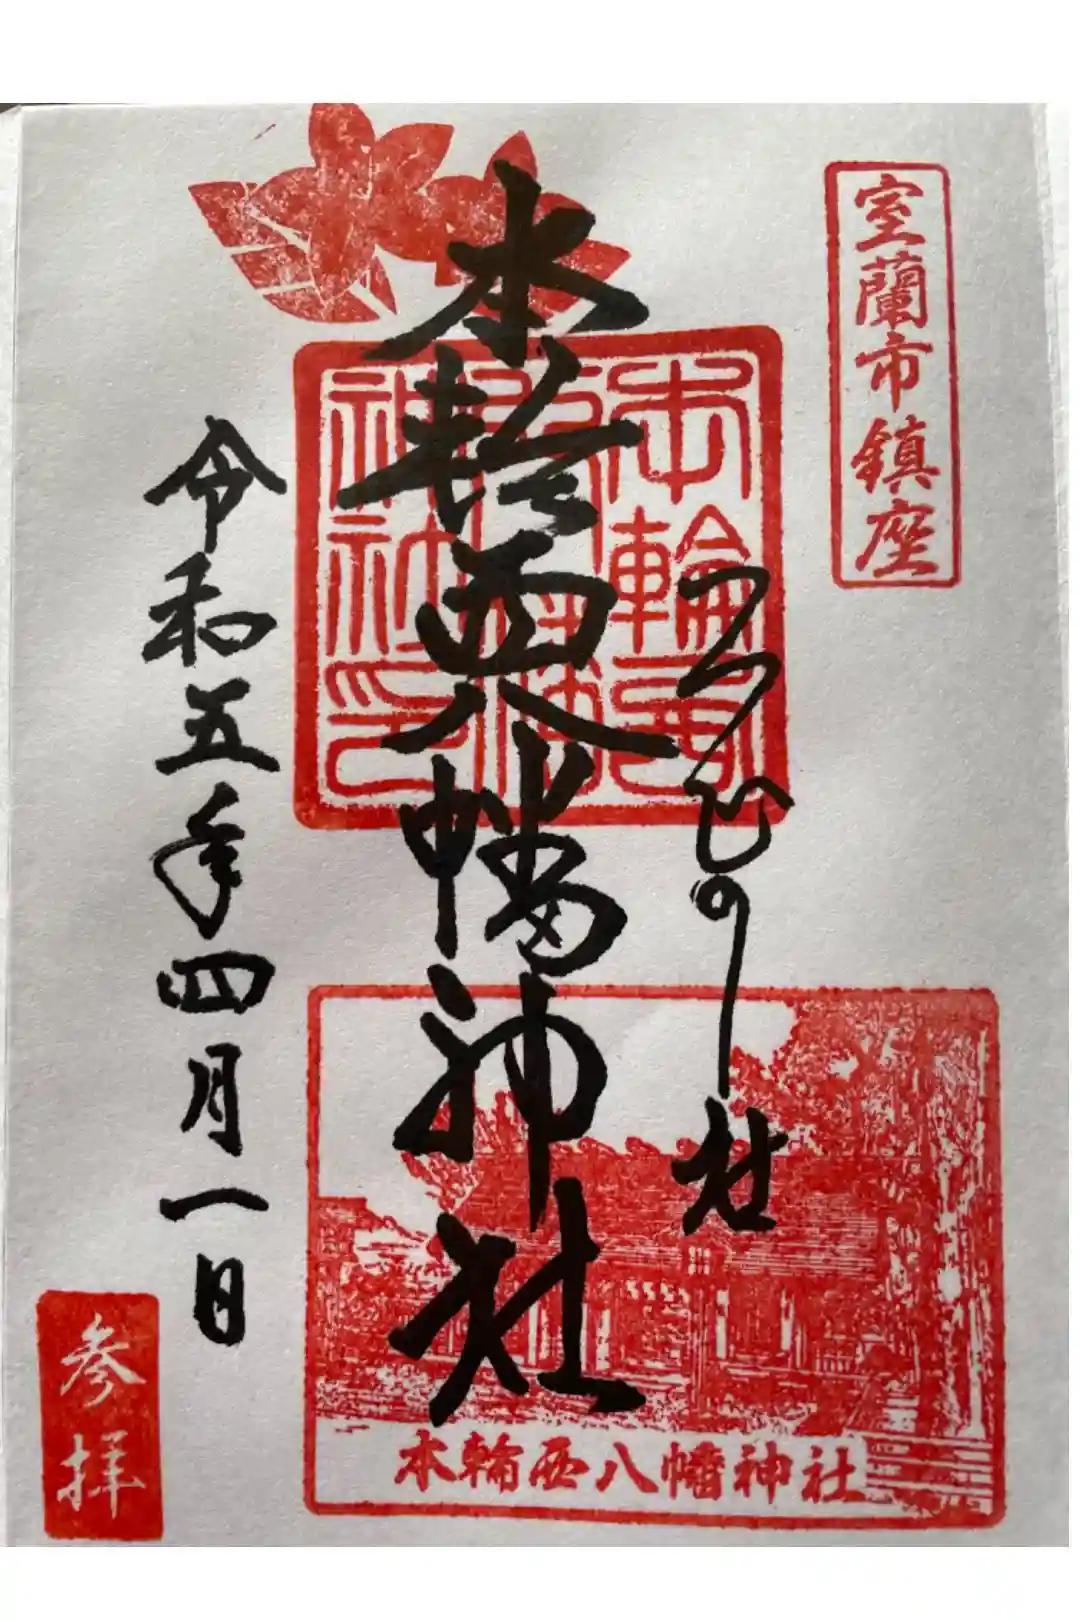 室蘭市鎮座
つつじの社
本輪西八幡神社
本輪西
八幡
神社印
令和五年四月一日
参拝
本輪西八幡神社